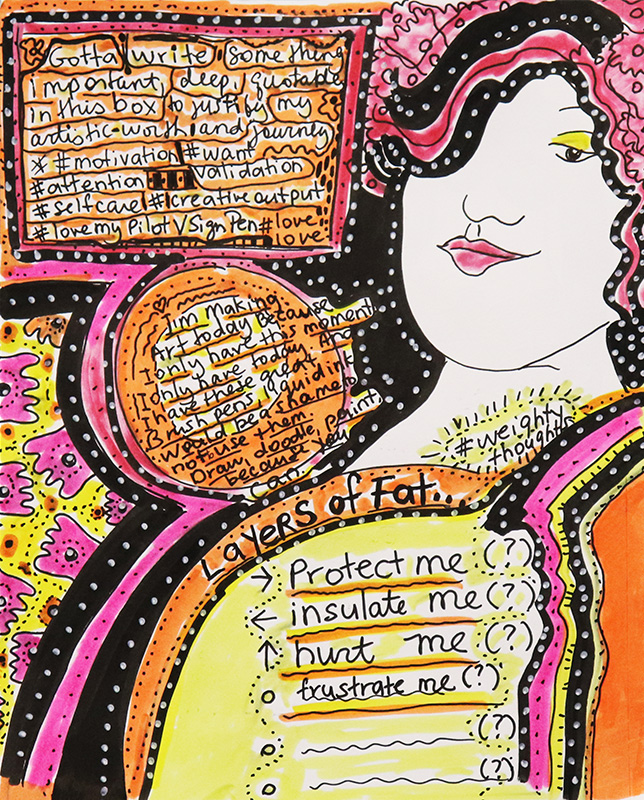 Gotta write something
important, deep, quotable
in this box to justify my
artistic-worth and journey
* #motivation #want
validation
#attention
#selfcare #creative output
#love my Pilot V Sign Pen #love
love
I'm making
Art today because
I only have this moment
I only have today. And
I have these great
Brush pens & liquid ink
Would be a shame to
not use them.
Draw, doodle, paint,
because you
can.
#weighty
thoughts
Layers of Fat...
→ Protect me (?)
← insulate me (?)
↑ hurt me (?)
frustrate me (?)
(?)
(?)